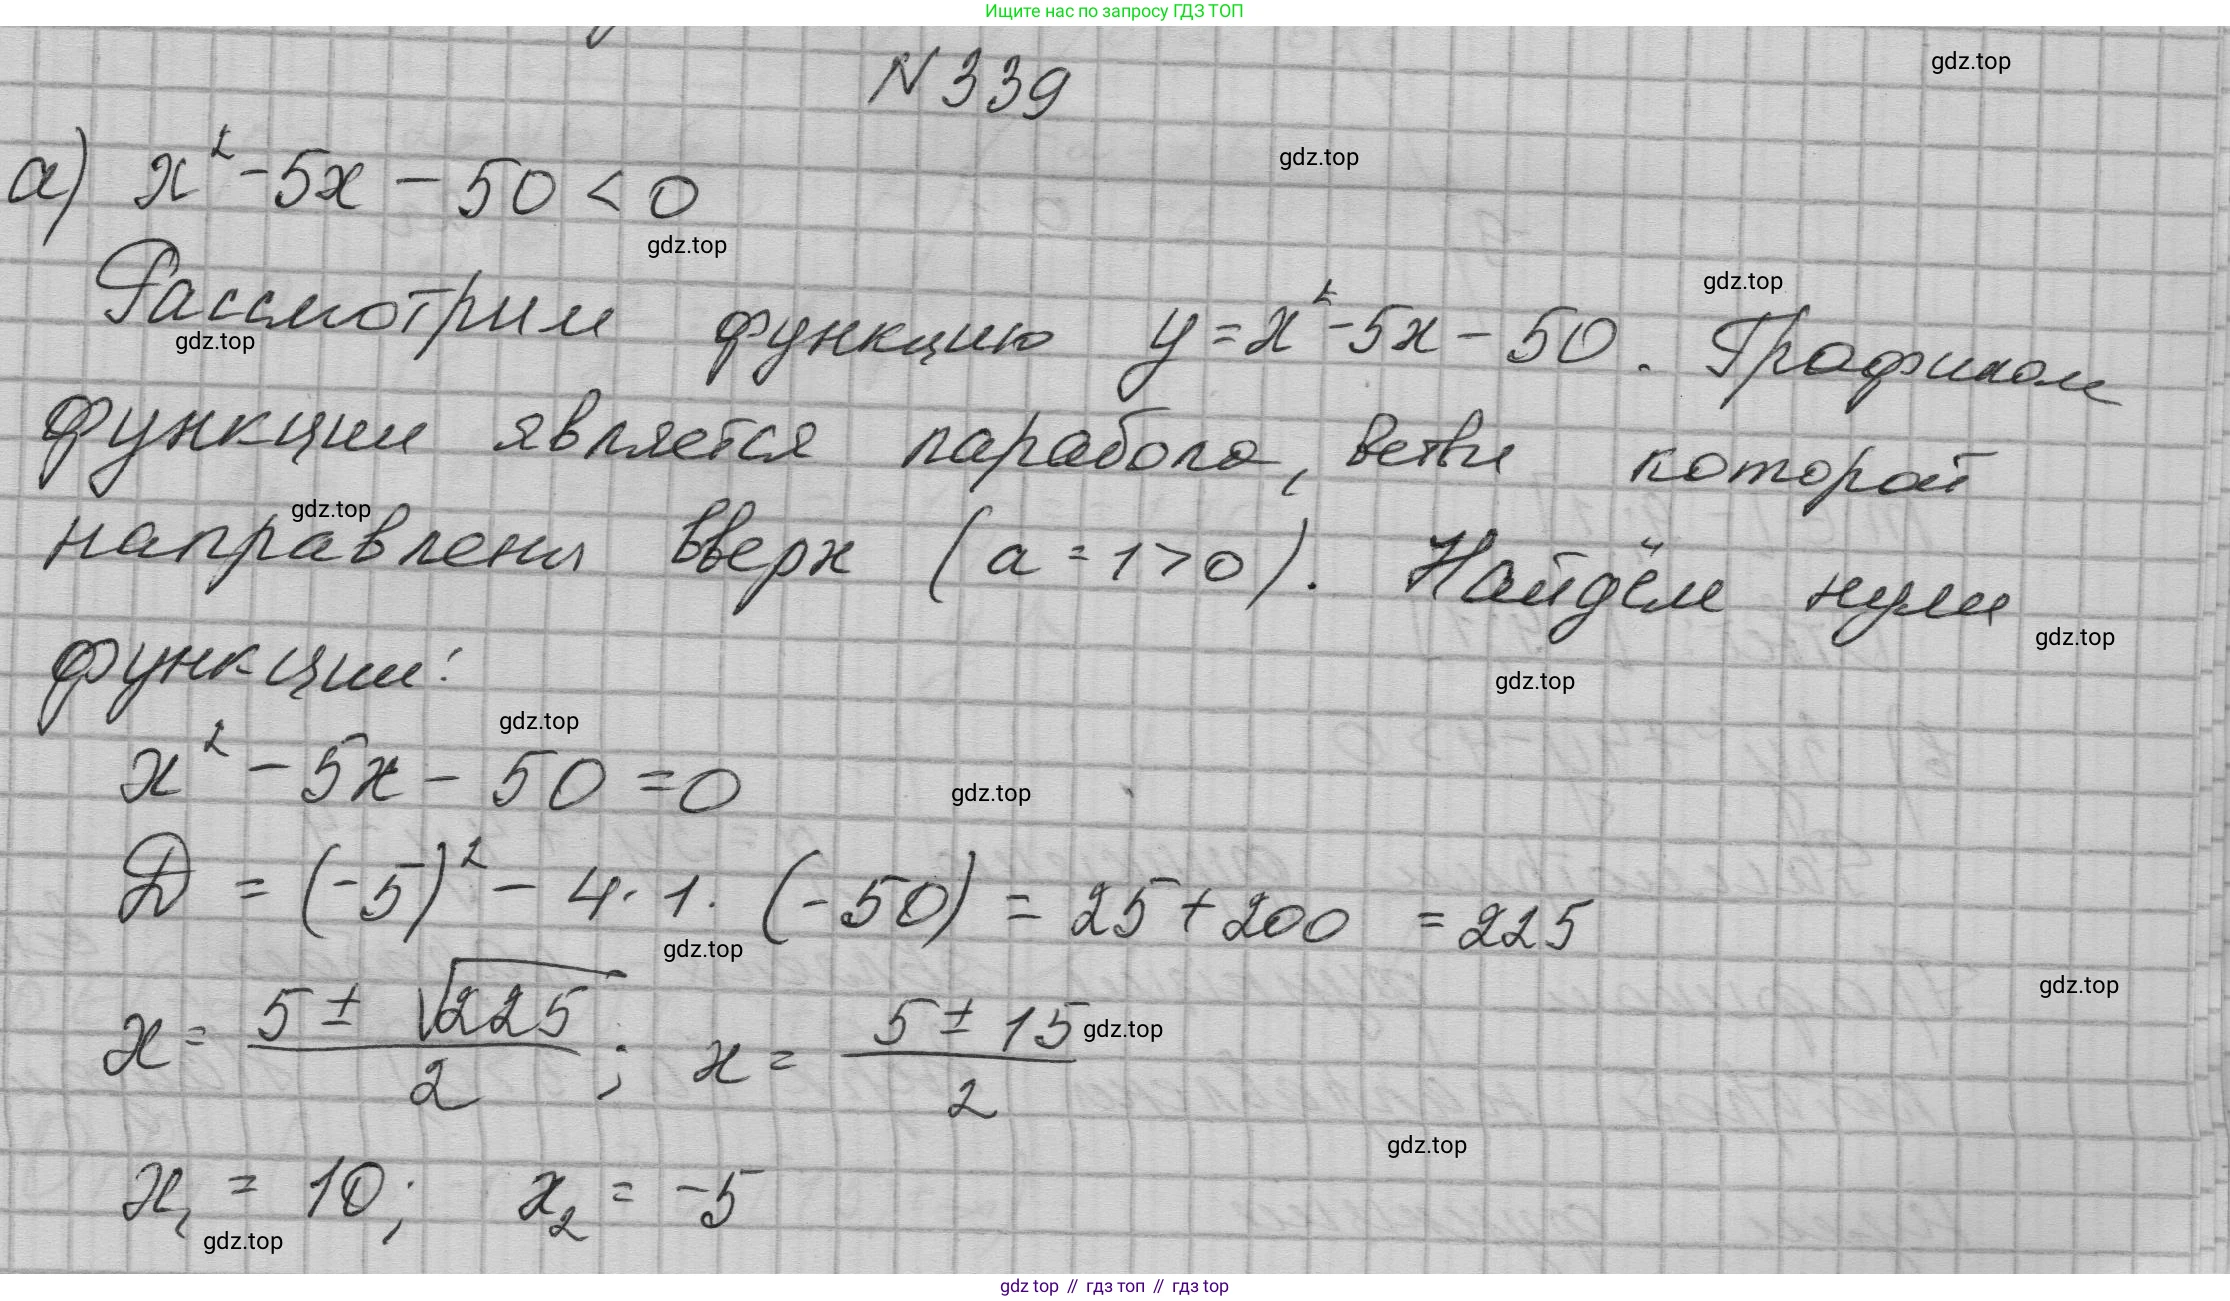 Ищите нас по запросу ГДЗ ТОП
N 339
gdz.top
а) x² - 5x - 50 < 0
gdz.top
gdz.top
Рассмотрим функцию y = x² - 5x - 50. Графиком
gdz.top
gdz.top
функции является парабола, ветви которой
gdz.top
направлены вверх (a = 1 > 0). Найдём нули
gdz.top
функции:
gdz.top
gdz.top
x² - 5x - 50 = 0
gdz.top
D = (-5)² - 4 · 1 · (-50) = 25 + 200 = 225
gdz.top
gdz.top
x = (5 ± √225)/2 ; x = (5 ± 15)/2
gdz.top
gdz.top
x₁ = 10; x₂ = -5
gdz.top
gdz top // гдз топ // гдз top